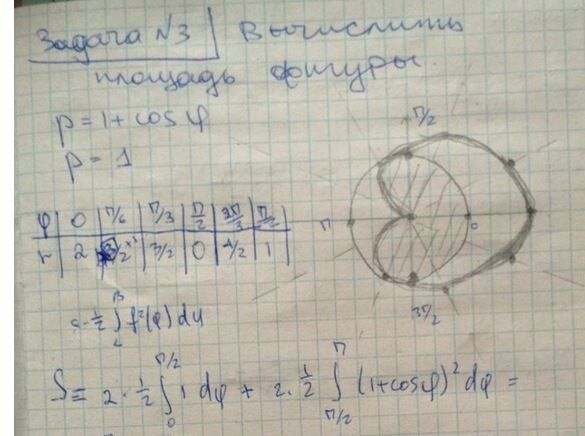 Задача №3 Вычислить
площадь фигуры.
ρ = 1 + cos φ
ρ = 1
π/2
φ | 0 | π/6 | π/3 | π/2 | 2π/3 | π/2
r | 2 | 3/2 | 0 | 1/2 | 1
π 0
3π/2
S = 1/2 ∫ f²(φ) dφ
S = 2 · 1/2 ∫₀^{π/2} 1 dφ + 2 · 1/2 ∫_{π/2}^{π} (1 + cos φ)² dφ =